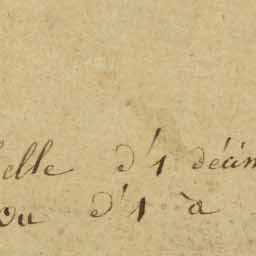 elle d'1 décim
ou d'1 à